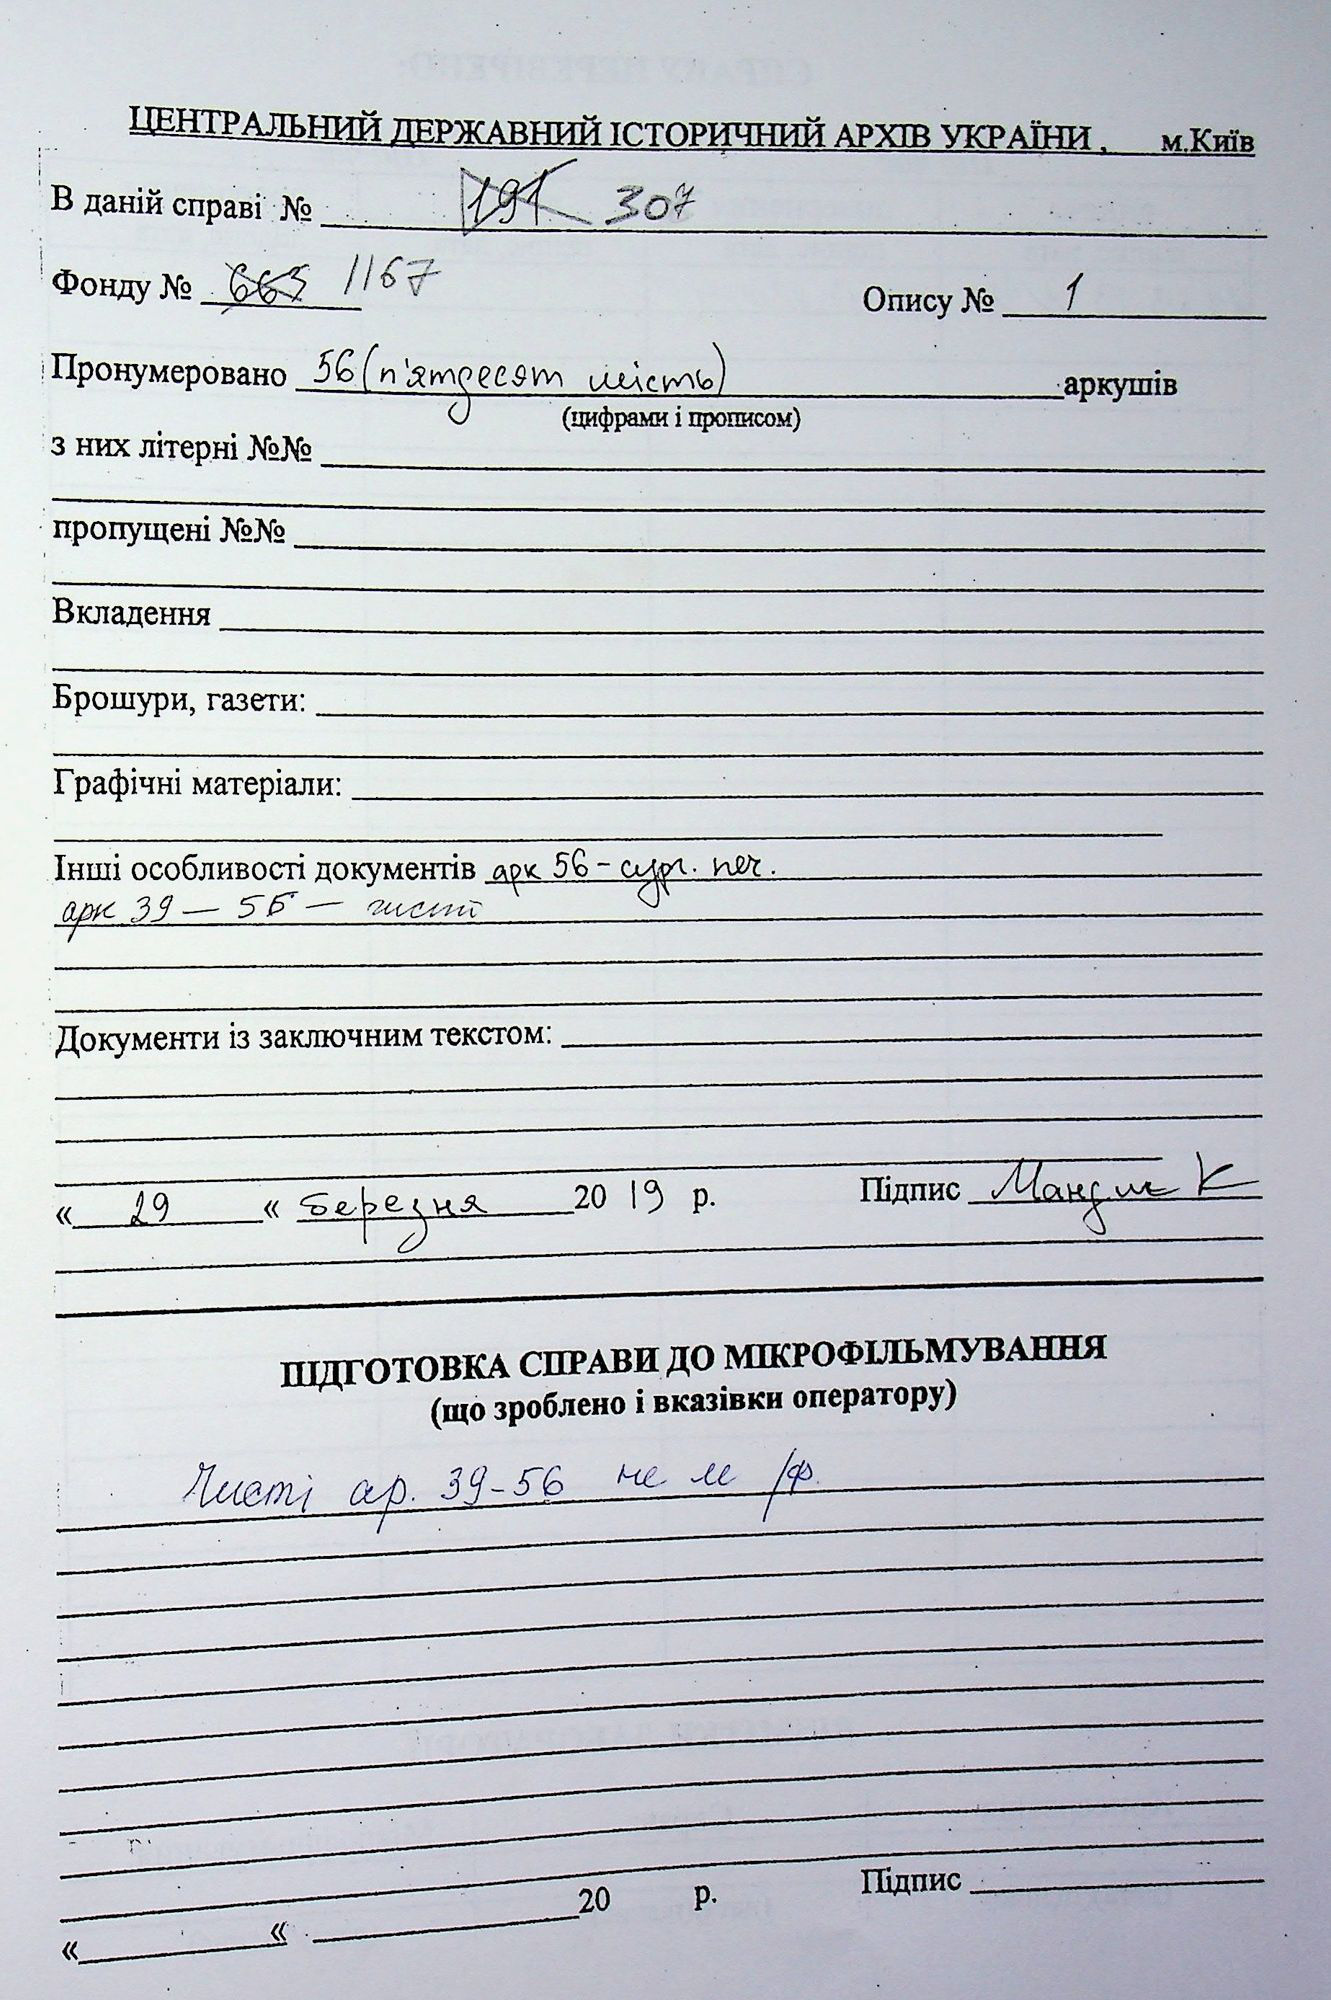 ЦЕНТРАЛЬНИЙ ДЕРЖАВНИЙ ІСТОРИЧНИЙ АРХІВ УКРАЇНИ, м.Київ
В даній справі № 191 307
Фонду № 663 1167 Опису № 1
Пронумеровано 56 (п'ятдесят шість) аркушів
(цифрами і прописом)
з них літерні №№
пропущені №№
Вкладення
Брошури, газети:
Графічні матеріали:
Інші особливості документів арк 56 - сург. печ.
арк 39 — 56 — чисті
Документи із заключним текстом:
« 29 « березня 20 19 р. Підпис
ПІДГОТОВКА СПРАВИ ДО МІКРОФІЛЬМУВАННЯ
(що зроблено і вказівки оператору)
Чисті ар. 39-56 не м/ф.
« « 20 р. Підпис